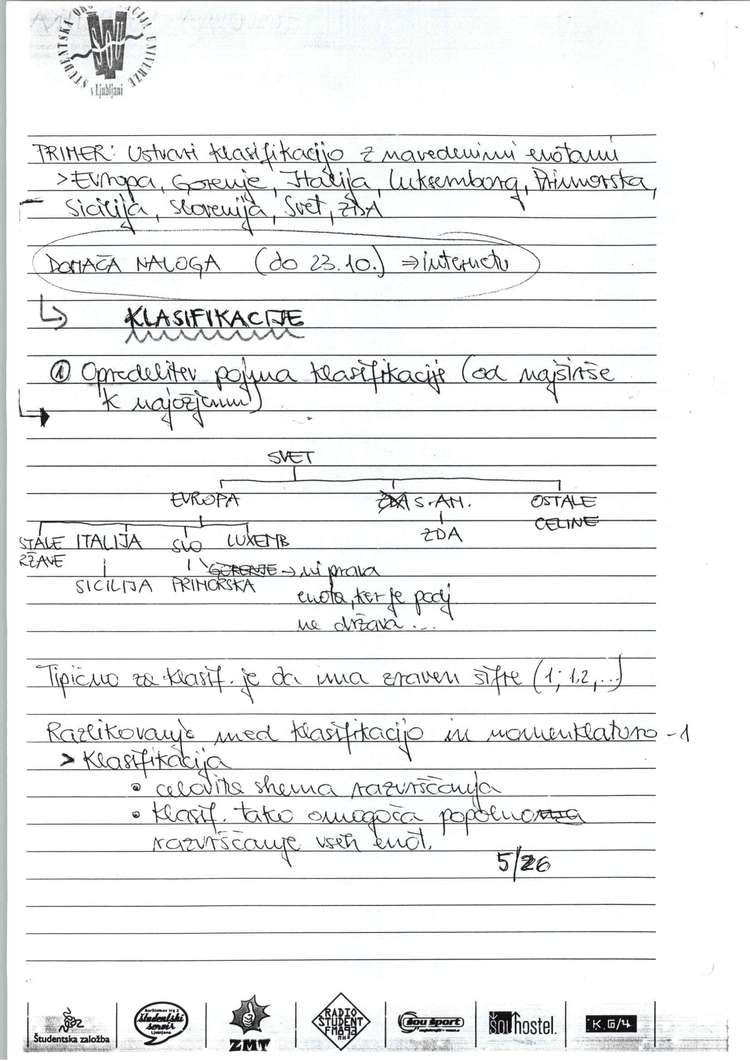 ŠTUDENTSKA ORGANIZACIJA UNIVERZE
v Ljubljani
PRIMER: Ustvari klasifikacijo z navedenimi enotami
> Evropa, Gorenje, Italija, Luksemborg, Primorska,
Sicilija, Slovenija, Svet, ZDA
DOMAČA NALOGA (do 23.10.) ⇒ internetu
KLASIFIKACIJE
① Opredelitev pojma klasifikacije (od najširše
k najožjemu)
SVET
EVROPA ZDA S. AM. OSTALE
CELINE
STALE ITALIJA SLO LUXEMB ZDA
RŽAVE
SICILIJA PRIMORSKA GORENJE → ni prava
enota, ker je podj
ne država...
Tipično za klasif. je da ima zraven šifre (1; 1.2,...)
Razlikovanje med klasifikacijo in nomenklaturo -1
> Klasifikacija
• celovita shema razvrščanja
• klasif. tako omogoča popolno
razvrščanje vseh enot.
5/26
Študentska založba
študentski servis
Ljubljana
ZMT
RADIO ŠTUDENT
FM 89,3
MHz
šou šport
ŠOU hostel.
K.G/4